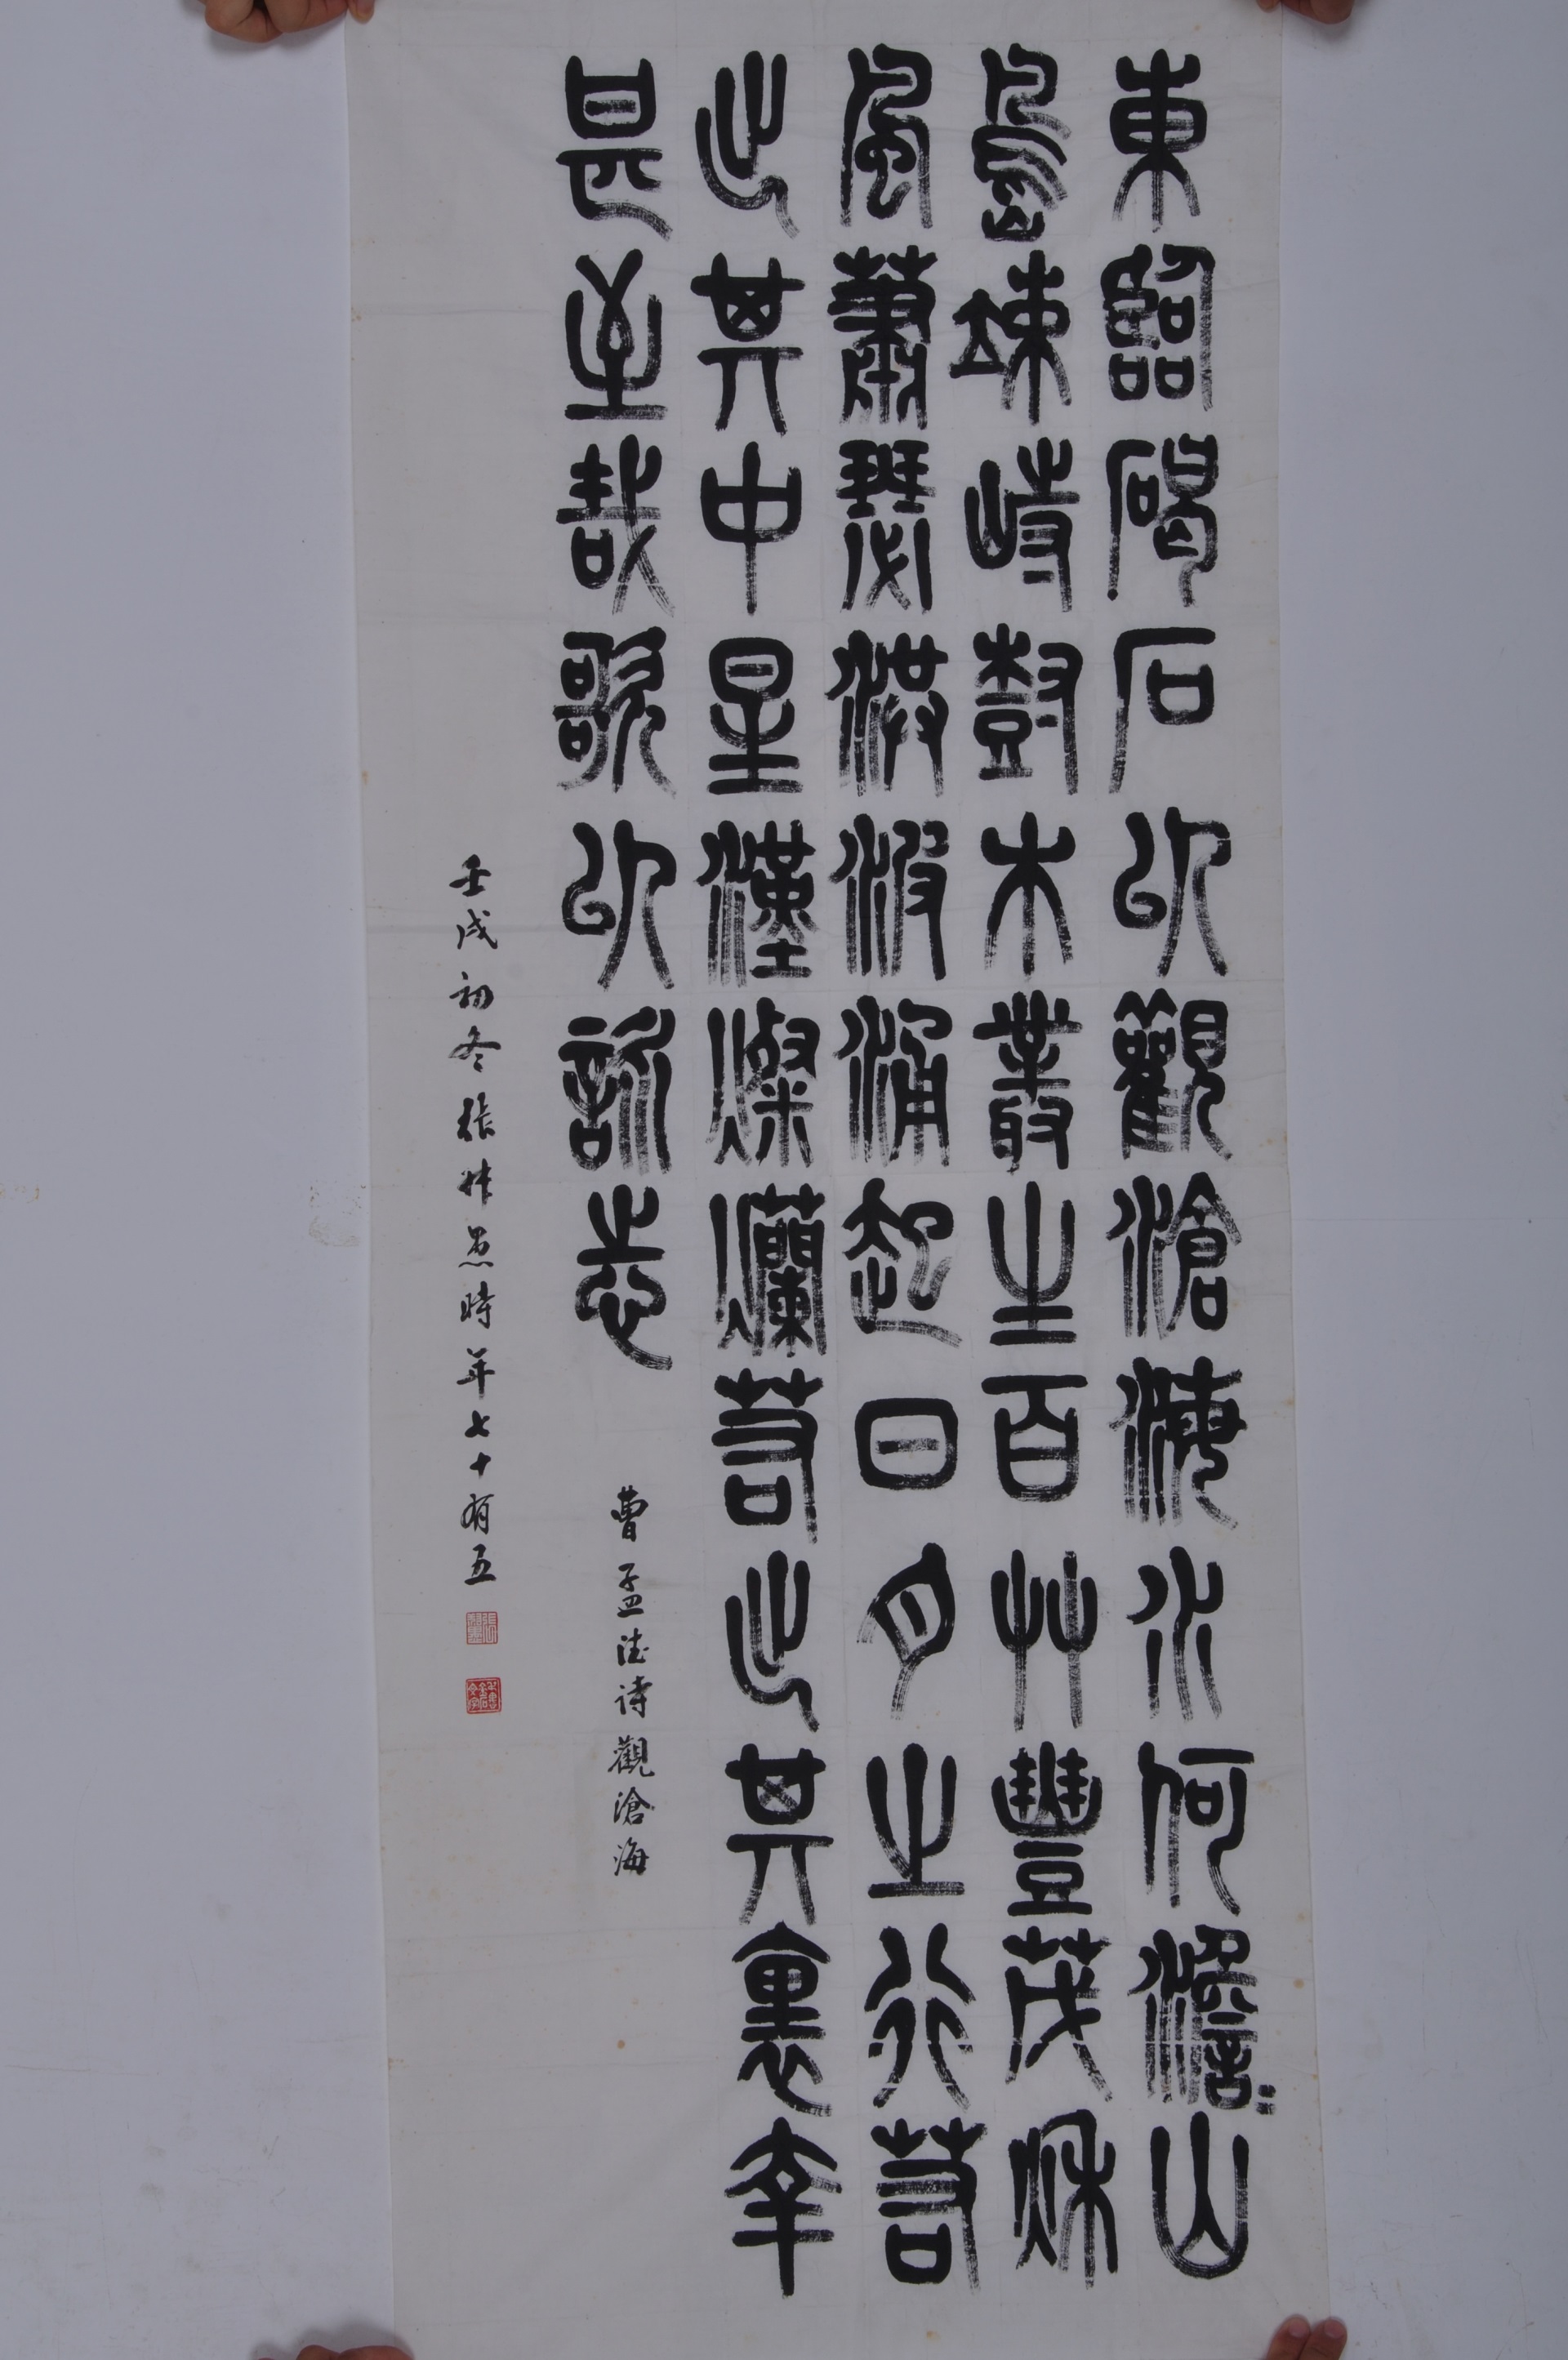 東臨碣石以觀滄海水何澹〻山
島竦峙樹木叢生百艸豐茂秋
風蕭瑟洪波涌起日月之行若
出其中星漢燦爛若出其裏幸
甚至哉歌以詠志 曹孟德诗觀滄海
壬戌初冬張叔愚時年七十有五